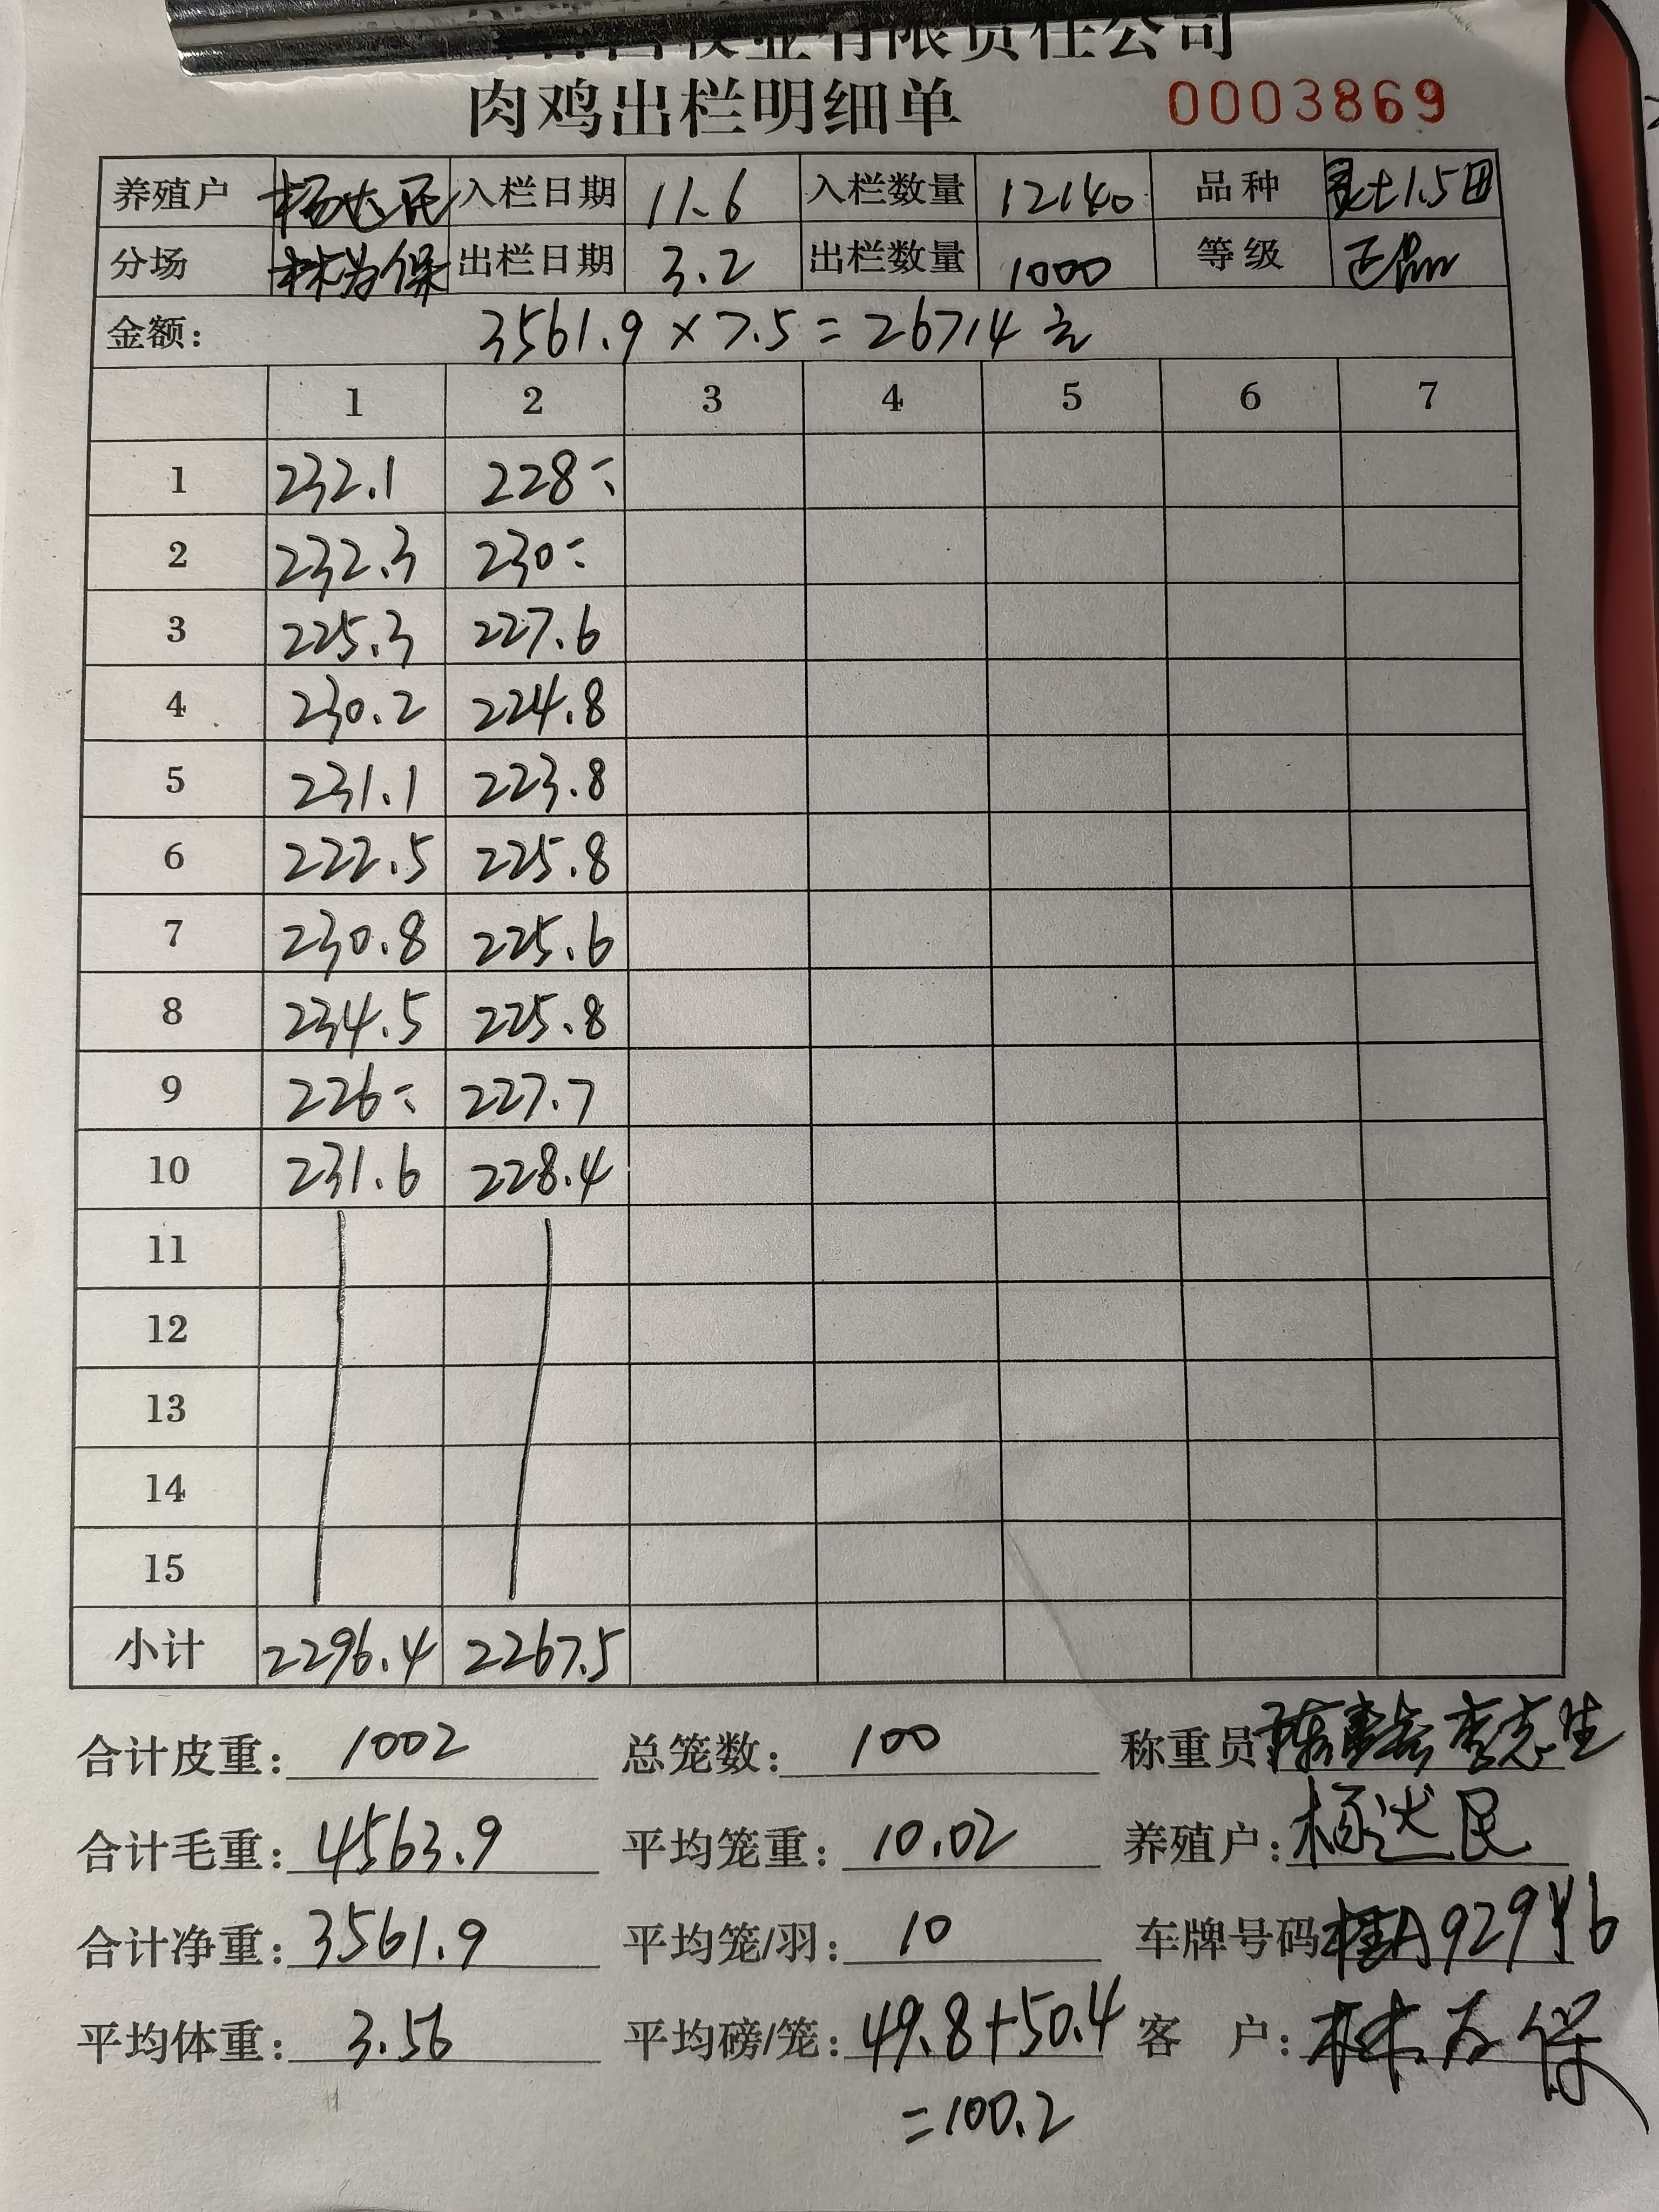 牧业有限责任公司
肉鸡出栏明细单 0003869
养殖户 杨达民 入栏日期 11.6 入栏数量 12140 品种 1.5
分场 林为保 出栏日期 3.2 出栏数量 1000 等级 正品
金额: 3561.9 × 7.5 = 26714 元
1 2 3 4 5 6 7
1 232.1 228-:
2 232.3 230-:
3 225.3 227.6
4 230.2 224.8
5 231.1 223.8
6 222.5 225.8
7 230.8 225.6
8 234.5 225.8
9 226-: 227.7
10 231.6 228.4
11
12
13
14
15
小计 2296.4 2267.5
合计皮重: 1002 总笼数: 100 称重员 李志生
合计毛重: 4563.9 平均笼重: 10.02 养殖户: 杨达民
合计净重: 3561.9 平均笼/羽: 10 车牌号码 桂A929Y6
平均体重: 3.56 平均磅/笼: 49.8+50.4 客 户: 林为保
=100.2